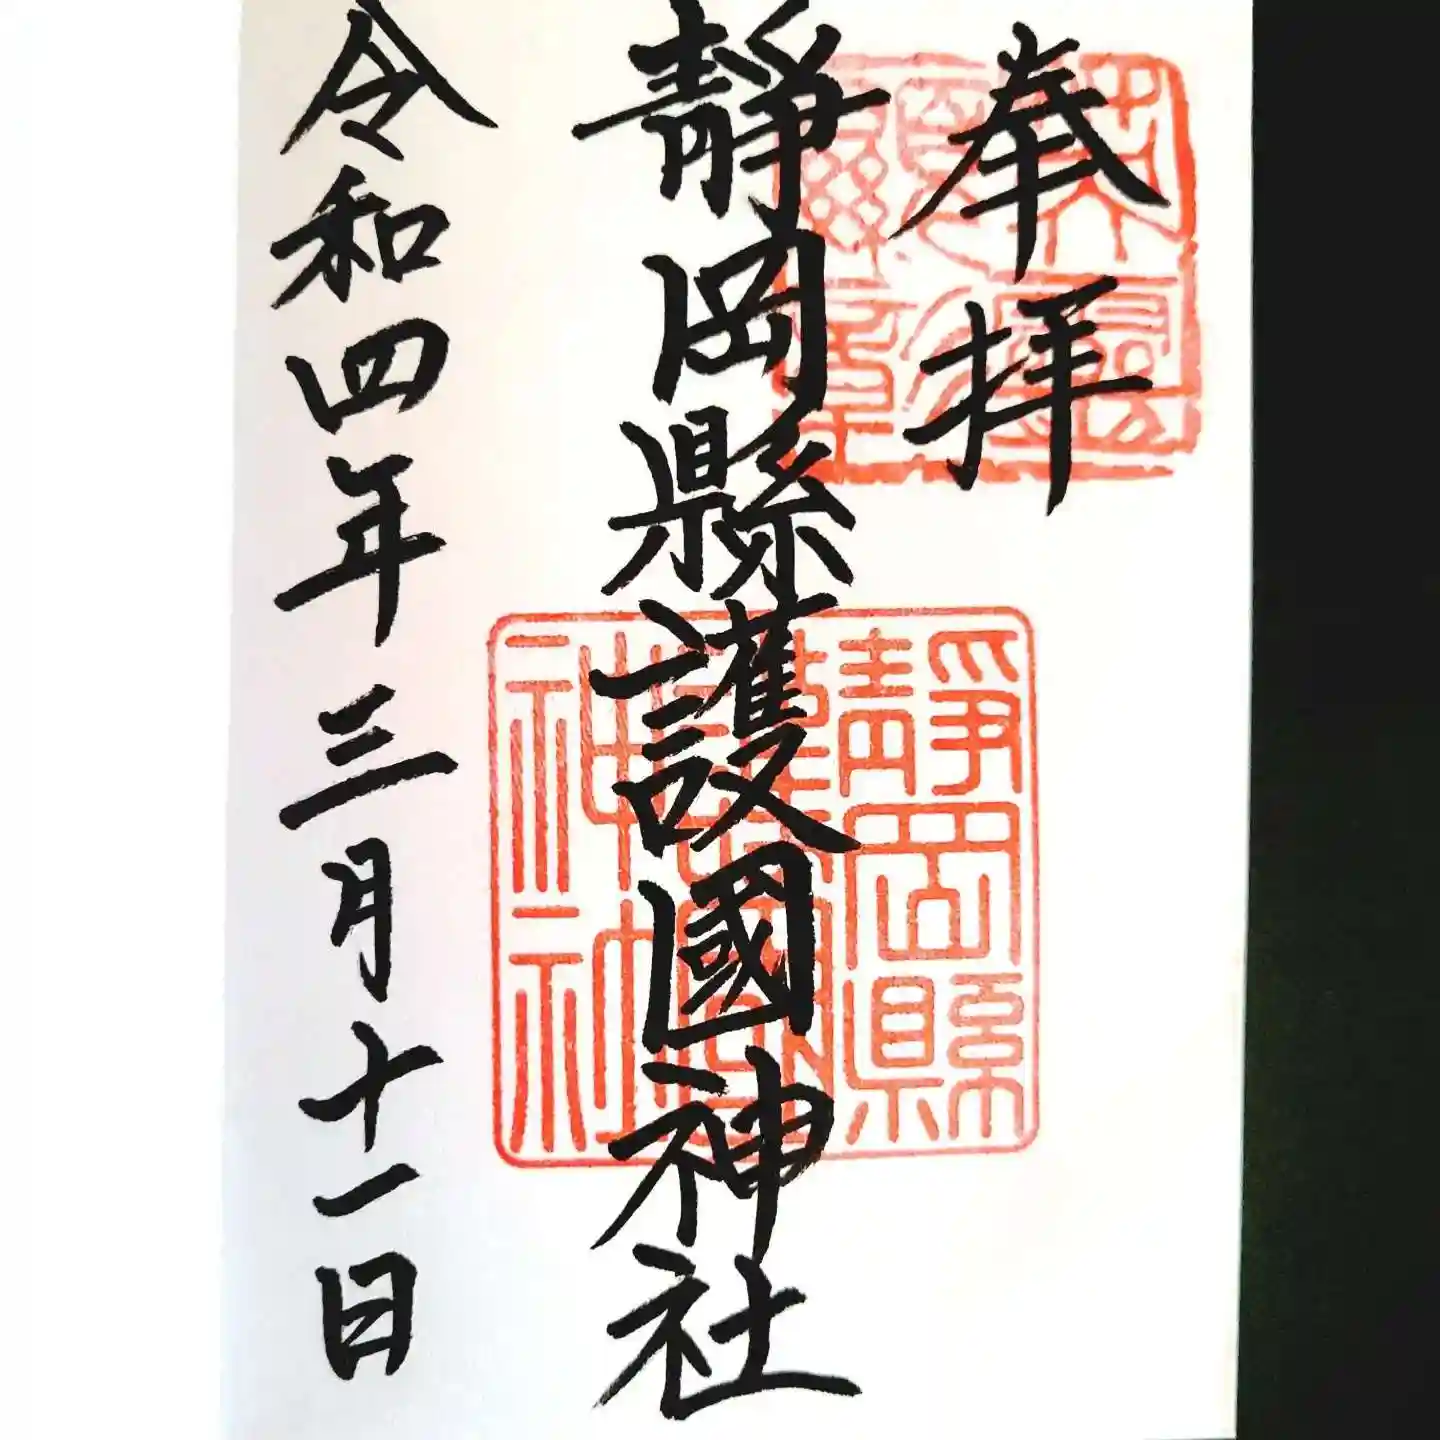 奉拝
靜岡縣護國神社
令和四年三月十一日
靜岡縣
護國
神社